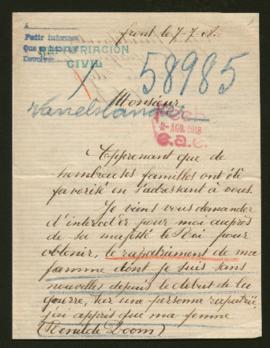 front le 7-7-18.
Pedir informes
REPATRIACIÓN
CIVIL
58985
Monsieur
AGO. 1918
Apprenant que de
nombreuses familles ont été
favorisé en s'adressant à vous.
Je viens vous demander
d'interceder pour moi auprès
de sa majesté le Roi pour
obtenir, le rapatriement de ma
famme dont je suis sans
nouvelles depuis le début de la
guerre, par une personne rapatrié,
j'ai appris que ma femme